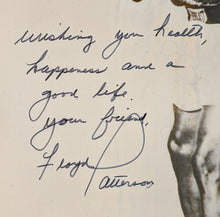 wishing you health,
happiness and a
good life
your friend,
Floyd
Patterson